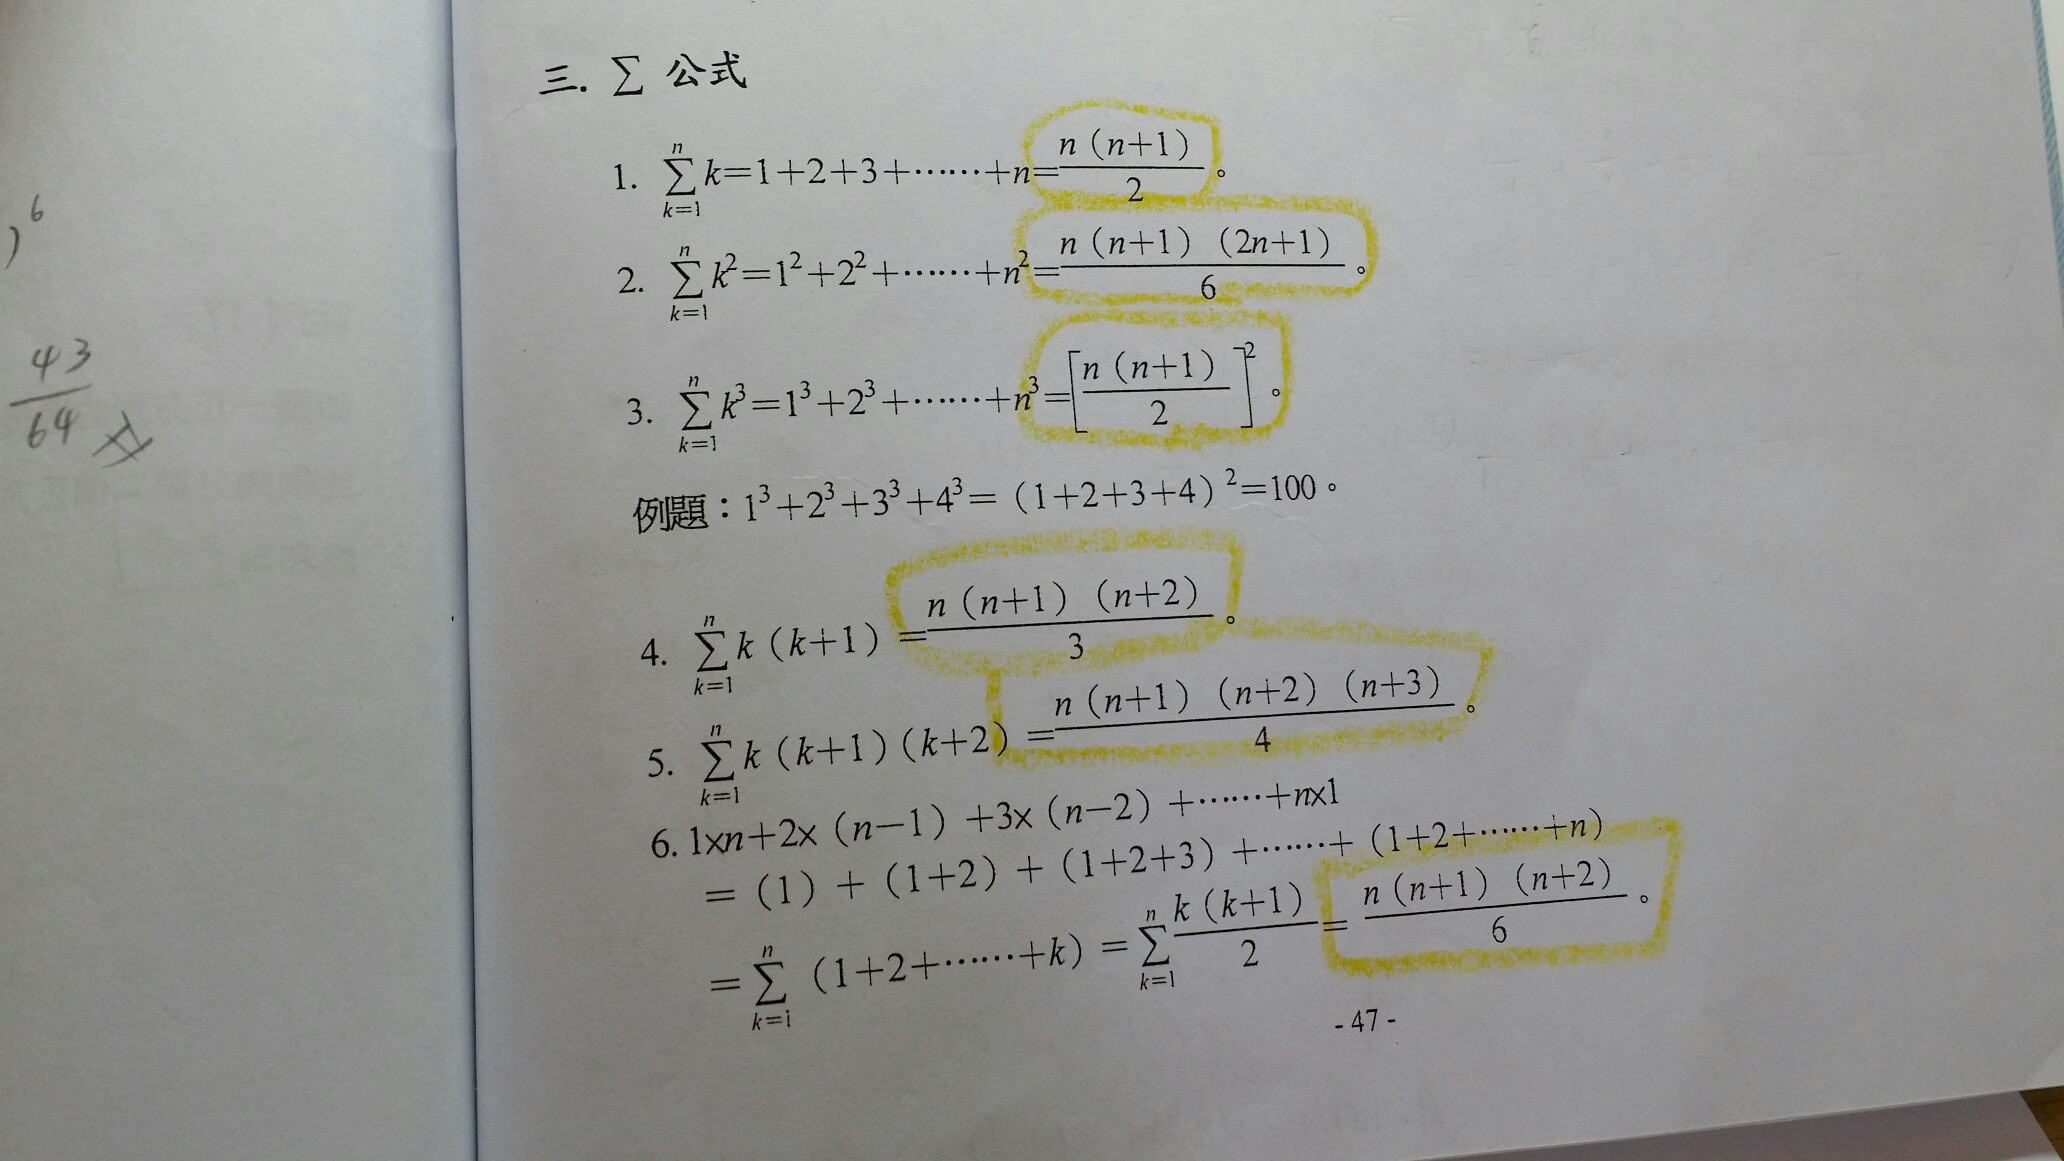 )⁶
43/64
三. ∑ 公式
1. ∑_{k=1}^{n} k=1+2+3+⋯⋯+n=n（n+1）/2。
2. ∑_{k=1}^{n} k²=1²+2²+⋯⋯+n²=n（n+1）（2n+1）/6。
3. ∑_{k=1}^{n} k³=1³+2³+⋯⋯+n³=[n（n+1）/2]²。
例題：1³+2³+3³+4³=（1+2+3+4）²=100。
4. ∑_{k=1}^{n} k（k+1）=n（n+1）（n+2）/3。
5. ∑_{k=1}^{n} k（k+1）（k+2）=n（n+1）（n+2）（n+3）/4。
6. 1xn+2x（n−1）+3x（n−2）+⋯⋯+nx1
=（1）+（1+2）+（1+2+3）+⋯⋯+（1+2+⋯⋯+n）
=∑_{k=1}^{n}（1+2+⋯⋯+k）=∑_{k=1}^{n} k（k+1）/2=n（n+1）（n+2）/6。
- 47 -